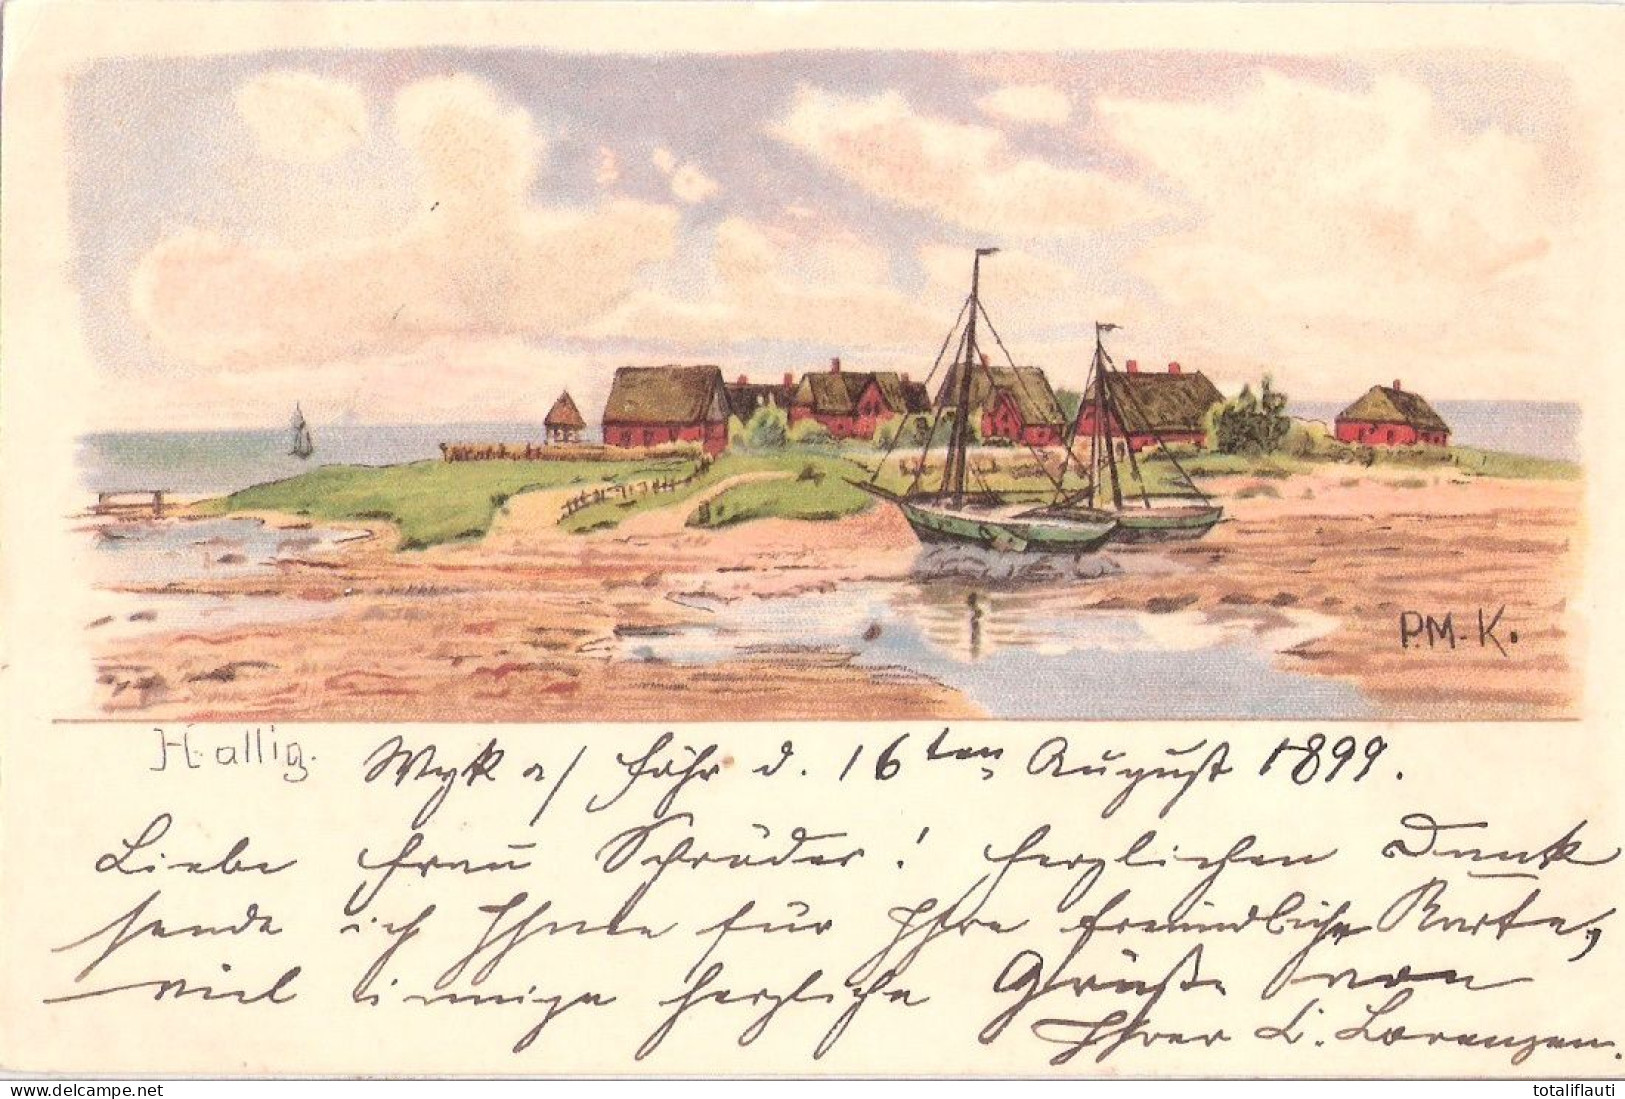 P.M-K.
Hallig. Wyk a/ Föhr d. 16ten August 1899.
Liebe Frau Schröder! Herzlichen Dank
sende ich Ihnen für Ihre freundliche Karte,
viel innige herzliche Grüße von
Ihrer L. Lorenzen.
www.delcampe.net
totaliflauti